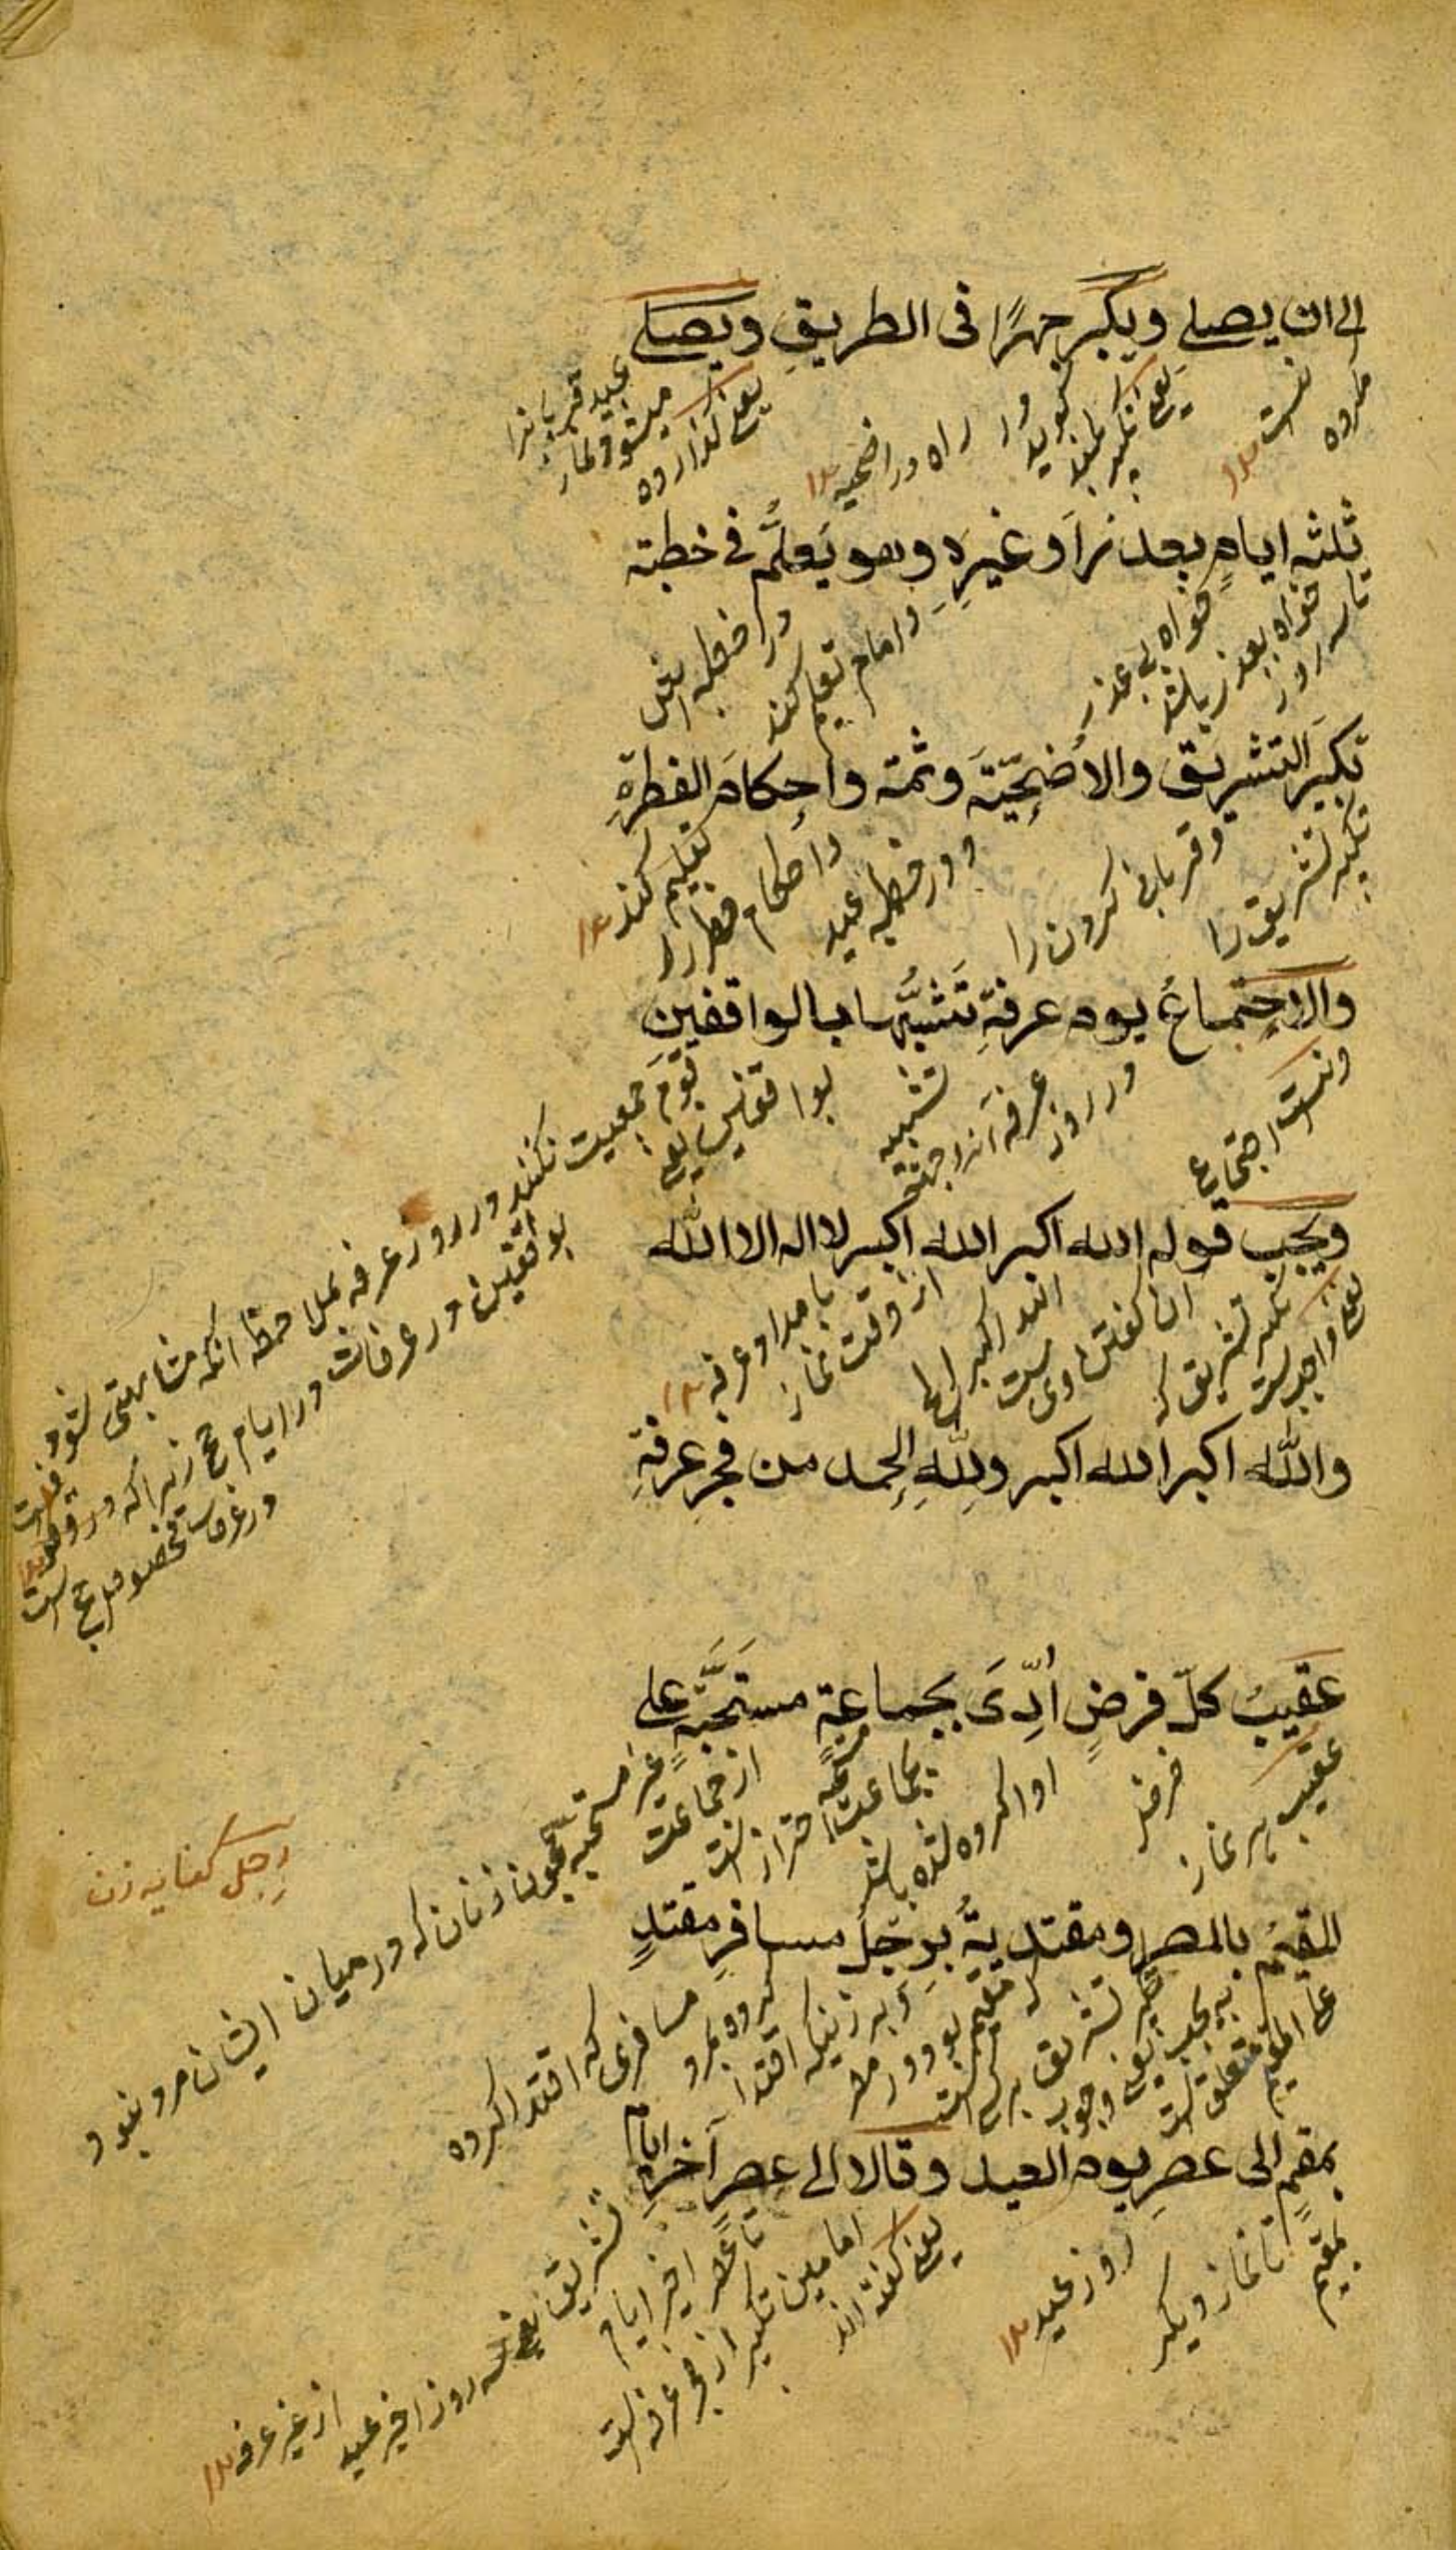 الے ان يصلے ويكبر جهرًا فى الطريقِ ويصلے
مكروه
نست ۱۲
يعنے تكبير بلند گويد در راه در اضحيه ۱۲
يعنے گذارده ميشود نماز عيد قربان را
ثلثه ايامٍ بعذر او غيرِه وهو يَعلَّم فے خطبته
تا سه روز
خواه بعذر باشد
خواه بى عذر
وامام تعليم كند
در خطبه اش
تكبيرَ التشريق والاُضحِيّتَه وثمه واحكامَ الفطرةِ
تكبير تشريق را
وقربانى كردن را
ودر خطبه عيد
واحكام فطر را
تعليم كند ۱۲
والاجتماعُ يوم عرفةِ تَشبُّها بالواقفين
ونست اجتماع
در روز عرفه از جهة
تشبيه
بواقفين يعنے
قوم جمعيت نكنند در روز عرفه بملاحظه انكه مشابهتى شود
بواقفين در عرفات در ايام حج زيرا كه در وقوف
در عرفات مخصوص حج است
ويجب قوله الله اكبر الله اكبر لا اله الا الله
يعنے واجبست
تكبير تشريق كه
ان گفتن اوى ست
الله اكبر الخ
از وقت نماز
بامداد عرفه ۱۲
والله اكبر الله اكبر وللهِ الحمد من فجرِ عرفةِ
عقيبَ كلّ فرضٍ اُدِّىَ بجماعةٍ مستَحَبَّةٍ علے
عقيب هر نماز
فرض
ادا كرده شده باشد
بجماعت مستحبه
احتراز است
از جماعت
غير مستحبه همچون زنان كه درميان ايشان مرد نبود
رجل كفايه زن
المقيم بالمصر ومقتديةٍ بِرَجُلٍ مسافرٍ مقتدٍ
على المقيم متعلق است
به يجب يعنے وجوب
تكبير تشريق بر كسى است
كه مقيم بود در مصر
وبر زنيكه اقتدا
كرده بمرد
مسافرى كه اقتدا كرده
بمقيمٍ الى عصرِ يوم العيد وقالا الى عصرِ آخرِ ايام
بمقيم
تا نماز ديگر
روز عيد ۱۲
يعنے گفته اند
امامين تكبير از فجر عرفه است
تا عصر اخير ايام
تشريق يعنے سه روز اخير عيد
از غير عرفه ۱۲